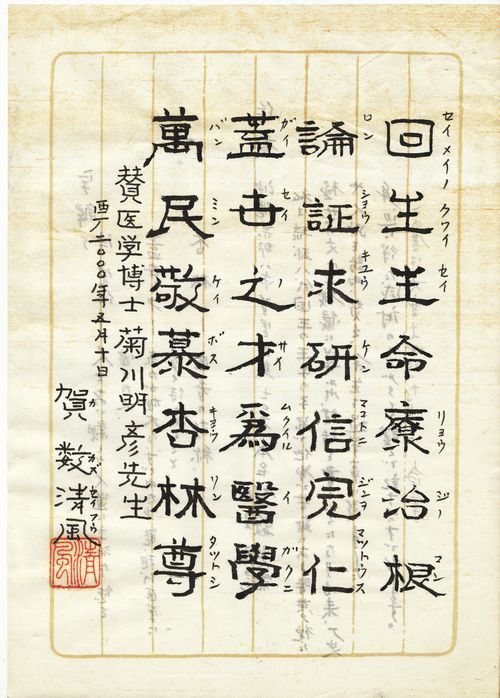 セイメイノ クワイ セイ リョウ ジノ マン
回生生命療治根
ロン ショウ キユウ ケン マコトニ ジンヲ マツトウス
論証求研信完仁
ガイ セイ ノ サイ ムクイル イ ガクニ
蓋世之才爲醫學
バン ミン ケイ ボス キヨウ リン タツトシ
萬民敬慕杏林尊
賛医学博士菊川明彦先生
西厂二〇〇〇年五月十日
カ カズ セイフウ
賀数清風
清風